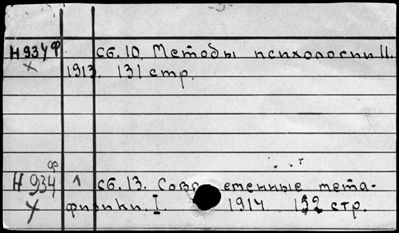 Н 934 ф сб. 10. Методы психологии II.
х 1913. 131 стр.
ф
Н 934 сб. 13. Совр еменные мета-
х физики. I. 1914. 132 стр.